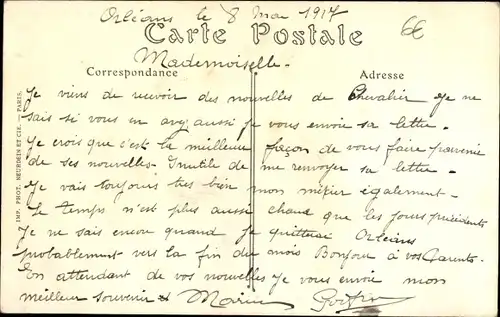 Orléans le 8 Mai 1917
6E
Carte Postale
Mademoiselle.
Correspondance
Adresse
IMP. PHOT. NEURDEIN ET CIE. — PARIS.
Je viens de recevoir des nouvelles de Chevalier Je ne
sais si vous en avez aussi je vous envoie sa lettre.
Je crois que c'est la meilleure façon de vous faire parvenir
de ses nouvelles. Inutile de me renvoyer sa lettre.
Je vais toujours très bien mon métier également.
Le temps n'est plus aussi chaud que les jours précédents
Je ne sais encore quand je quitterai Orléans
probablement vers la fin du mois Bonjour à vos Parents.
En attendant de vos nouvelles Je vous envoie mon
meilleur souvenir